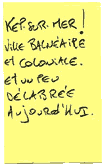 KEP-SUR-MER !
VILLE BALNÉAIRE
ET COLONIALE.
ET UN PEU
DÉLABRÉE
AUJOURD'HUI.